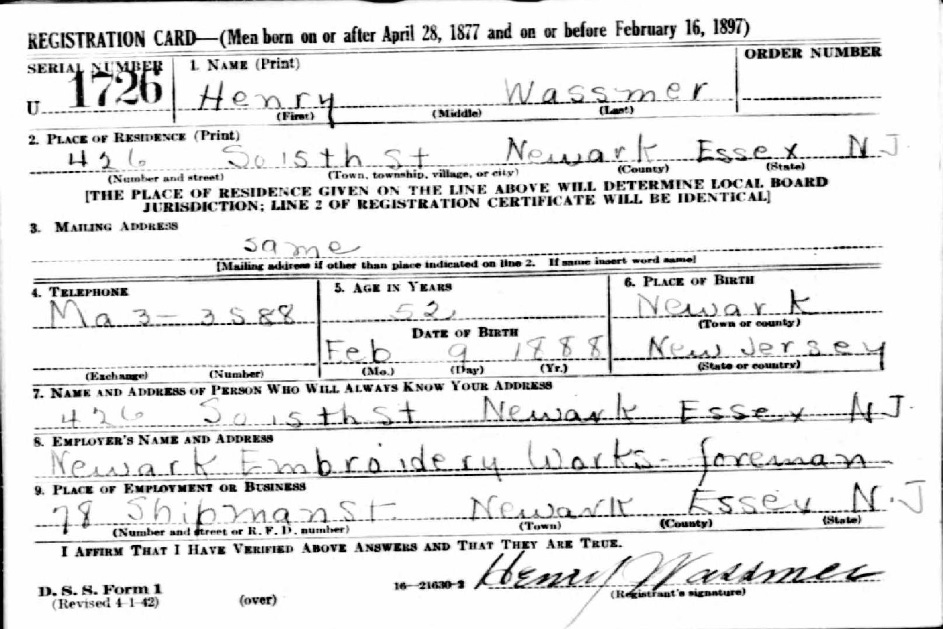 REGISTRATION CARD—(Men born on or after April 28, 1877 and on or before February 16, 1897)
SERIAL NUMBER 1. NAME (Print) ORDER NUMBER
U 1726 Henry Wassmer
(First) (Middle) (Last)
2. PLACE OF RESIDENCE (Print)
426 So 15th St Newark Essex N J.
(Number and street) (Town, township, village, or city) (County) (State)
[THE PLACE OF RESIDENCE GIVEN ON THE LINE ABOVE WILL DETERMINE LOCAL BOARD
JURISDICTION; LINE 2 OF REGISTRATION CERTIFICATE WILL BE IDENTICAL]
3. MAILING ADDRESS
same
[Mailing address if other than place indicated on line 2. If same insert word same]
4. TELEPHONE 5. AGE IN YEARS 6. PLACE OF BIRTH
Ma 3-3588 52 Newark
DATE OF BIRTH (Town or county)
Feb 9 1888 New Jersey
(Exchange) (Number) (Mo.) (Day) (Yr.) (State or country)
7. NAME AND ADDRESS OF PERSON WHO WILL ALWAYS KNOW YOUR ADDRESS
426 So 15th St Newark Essex N J.
8. EMPLOYER'S NAME AND ADDRESS
Newark Embroidery Works - foreman
9. PLACE OF EMPLOYMENT OR BUSINESS
78 Shipman St Newark Essex N.J
(Number and street or R. F. D. number) (Town) (County) (State)
I AFFIRM THAT I HAVE VERIFIED ABOVE ANSWERS AND THAT THEY ARE TRUE.
D. S. S. Form 1 16—21630-2 Henry Wassmer
(Revised 4-1-42) (over) (Registrant's signature)